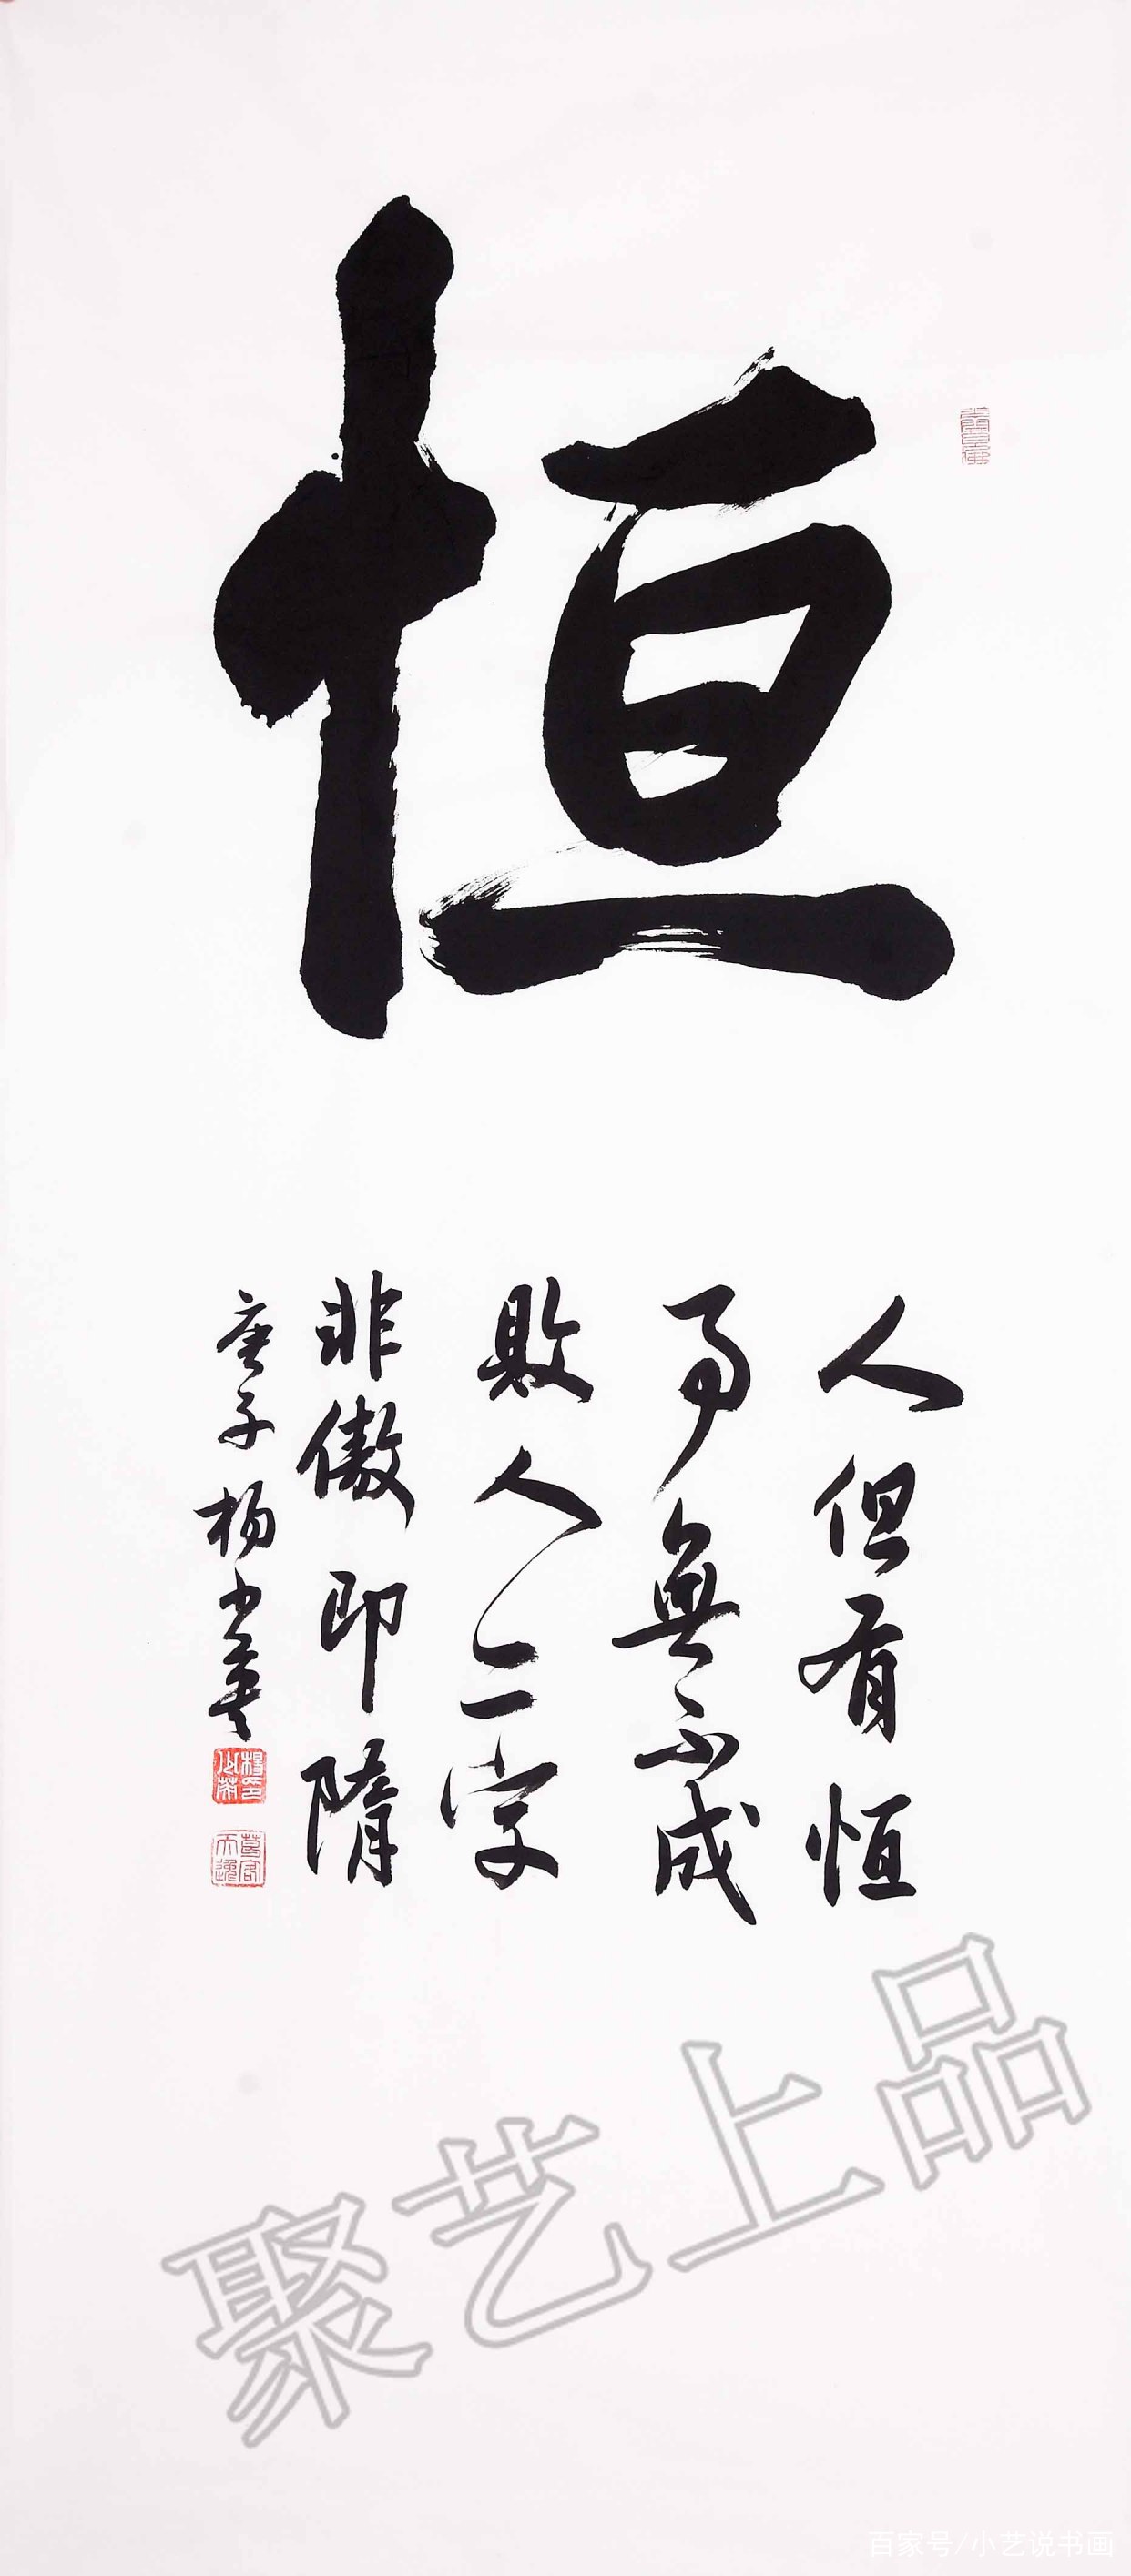 恒
人但有恒
事無不成
敗人二字
非傲即隋
庚子杨少英
聚艺上品
百家号/小艺说书画